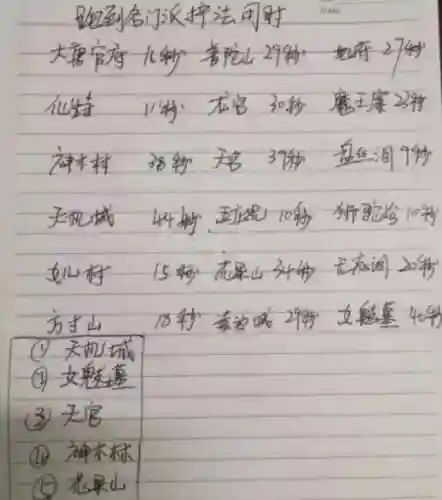 跑到各门派护法用时
大唐官府 16秒 普陀山 29秒 地府 27秒
化生寺 11秒 龙宫 30秒 魔王寨 23秒
神木林 38秒 天宫 39秒 盘丝洞 9秒
天机城 44秒 五庄观 10秒 狮驼岭 10秒
女儿村 15秒 花果山 34秒 无底洞 20秒
方寸山 18秒 凌波城 29秒 女魃墓 40秒
① 天机城
② 女魃墓
③ 天宫
④ 神木林
⑤ 花果山